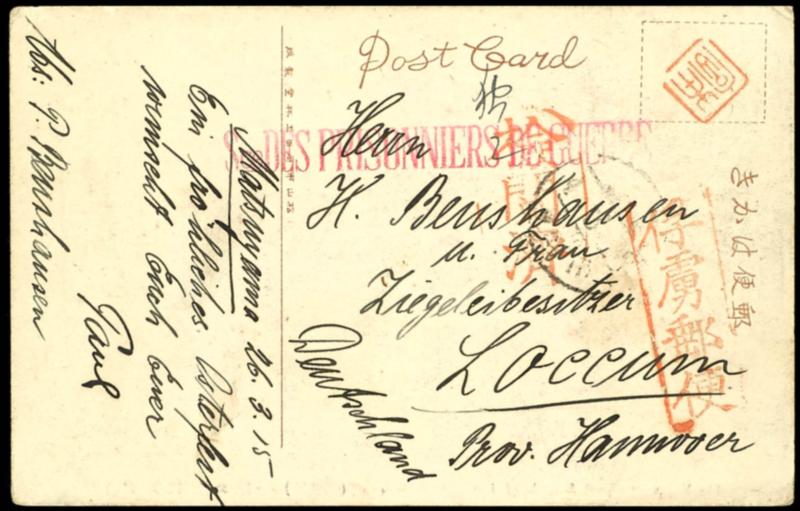 Post Card
きかは便郵
Sce DES PRISONNIERS DE GUERRE
檢閲濟
俘虜郵便
Herrn
H. Benshausen
u. Frau
Ziegeleibesitzer
Loccum
Prov. Hannover
Deutschland
Matsuyama 26.3.15
Ein fröhliches Osterfest
wünscht Euch Euer
Paul
Abs: P. Benshausen